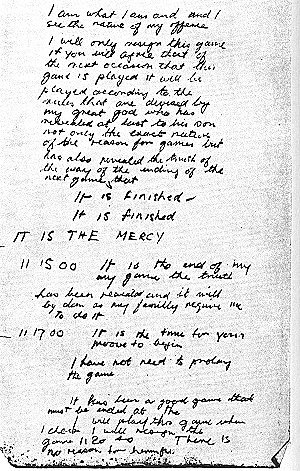 I am what I am and and I
see the nature of my offence
I will only resign this game
if you will agree that
the next occasion that this
game is played it will be
played according to the
rules that are devised by
my great god who has
revealed at last to his son
not only the exact nature
of the reason for games but
has also revealed the truth of
the way of the ending of the
next game that
It is finished -
It is finished
IT IS THE MERCY
11 15 00 It is the end of my
my game the truth
has been revealed and it will
be done as my family require me
To do it
11 17 00 It is the time for your
move to begin
I have not need to prolong
the game
It has been a good game that
must be ended at the
will play this game when
I choose I will resign the
game 11 20 40 There is
no reason for harmful